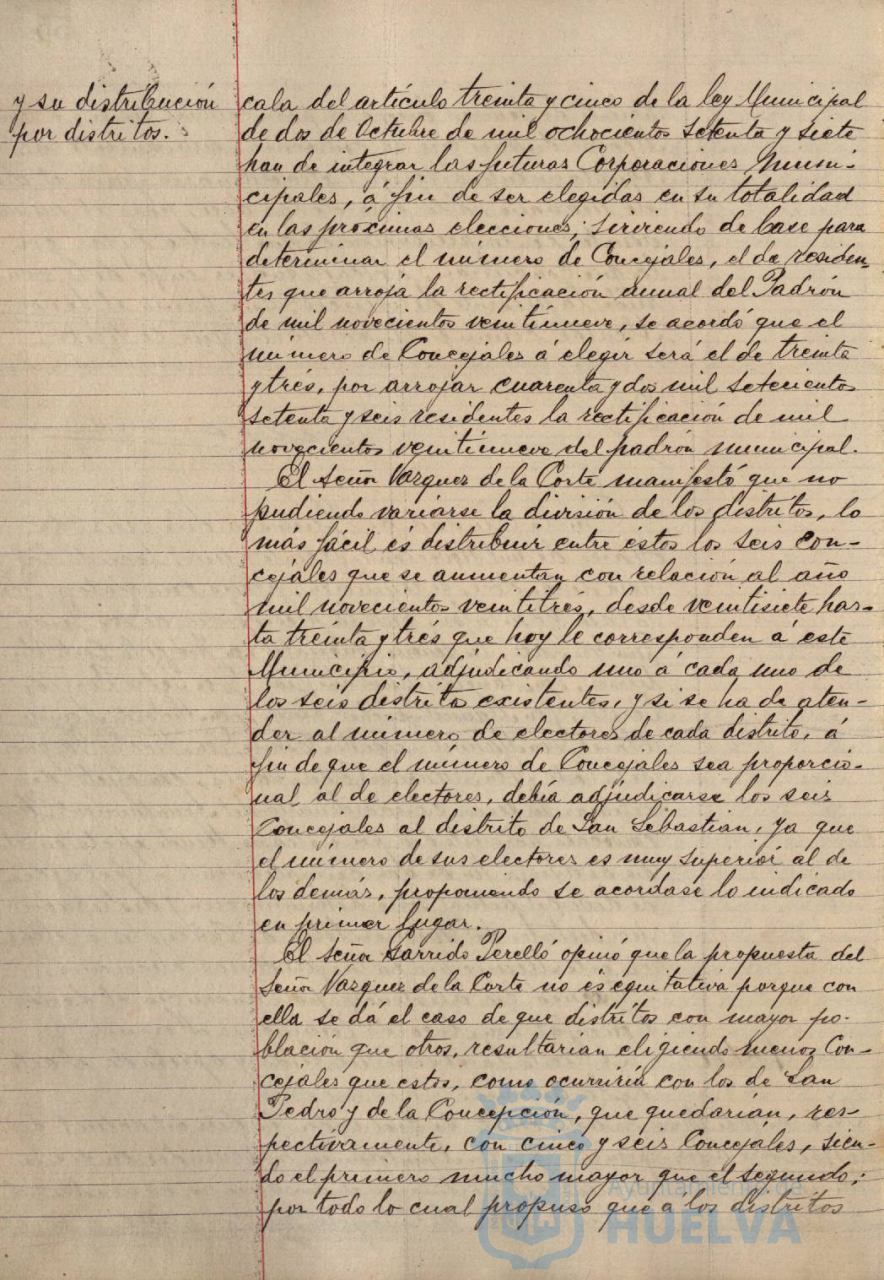 y su distribución
por distritos.
cala del artículo treinta y cinco de la ley Municipal
de dos de Octubre de mil ochocientos setenta y siete
han de integrar las futuras Corporaciones Muni-
cipales, á fin de ser elegidas en su totalidad
en las próximas elecciones; sirviendo de base para
determinar el número de Concejales, el de residen-
tes que arroja la rectificación anual del Padrón
de mil novecientos veintinueve, se acordó que el
número de Concejales á elegir será el de treinta
y trés, por arrojar cuarenta y dos mil setecientos
setenta y seis residentes la rectificación de mil
novecientos veintinueve del padrón municipal.
El Señor Vazquez de la Corte manifestó que no
pudiendo variarse la división de los distritos, lo
más fácil és distribuir entre éstos los seis con-
cejales que se aumentan con relación al año
mil novecientos veintitrés, desde veintisiete has-
ta treinta y trés que hoy le corresponden á este
Municipio, adjudicando uno á cada uno de
los seis distritos existentes, y si se ha de aten-
der al número de electores de cada distrito, á
fin de que el número de Concejales sea proporcio-
nal al de electores, debía adjudicarse los seis
Concejales al distrito de San Sebastian, ya que
el número de sus electores es muy superior al de
los demás, proponiendo se acordase lo indicado
en primer lugar.
El Señor Garrido Perelló opinó que la propuesta del
Señor Vazquez de la Corte no és equitativa porque con
ella se dá el caso de que distritos con mayor po-
blación que otros, resultarian eligiendo menos Con-
cejales que estos, como ocurriría con los de San
Pedro y de la Concepción, que quedarían, res-
pectivamente, con cinco y seis Concejales, sien-
do el primero mucho mayor que el segundo;
por todo lo cual propuso que a los distritos
Ayuntamiento de
HUELVA